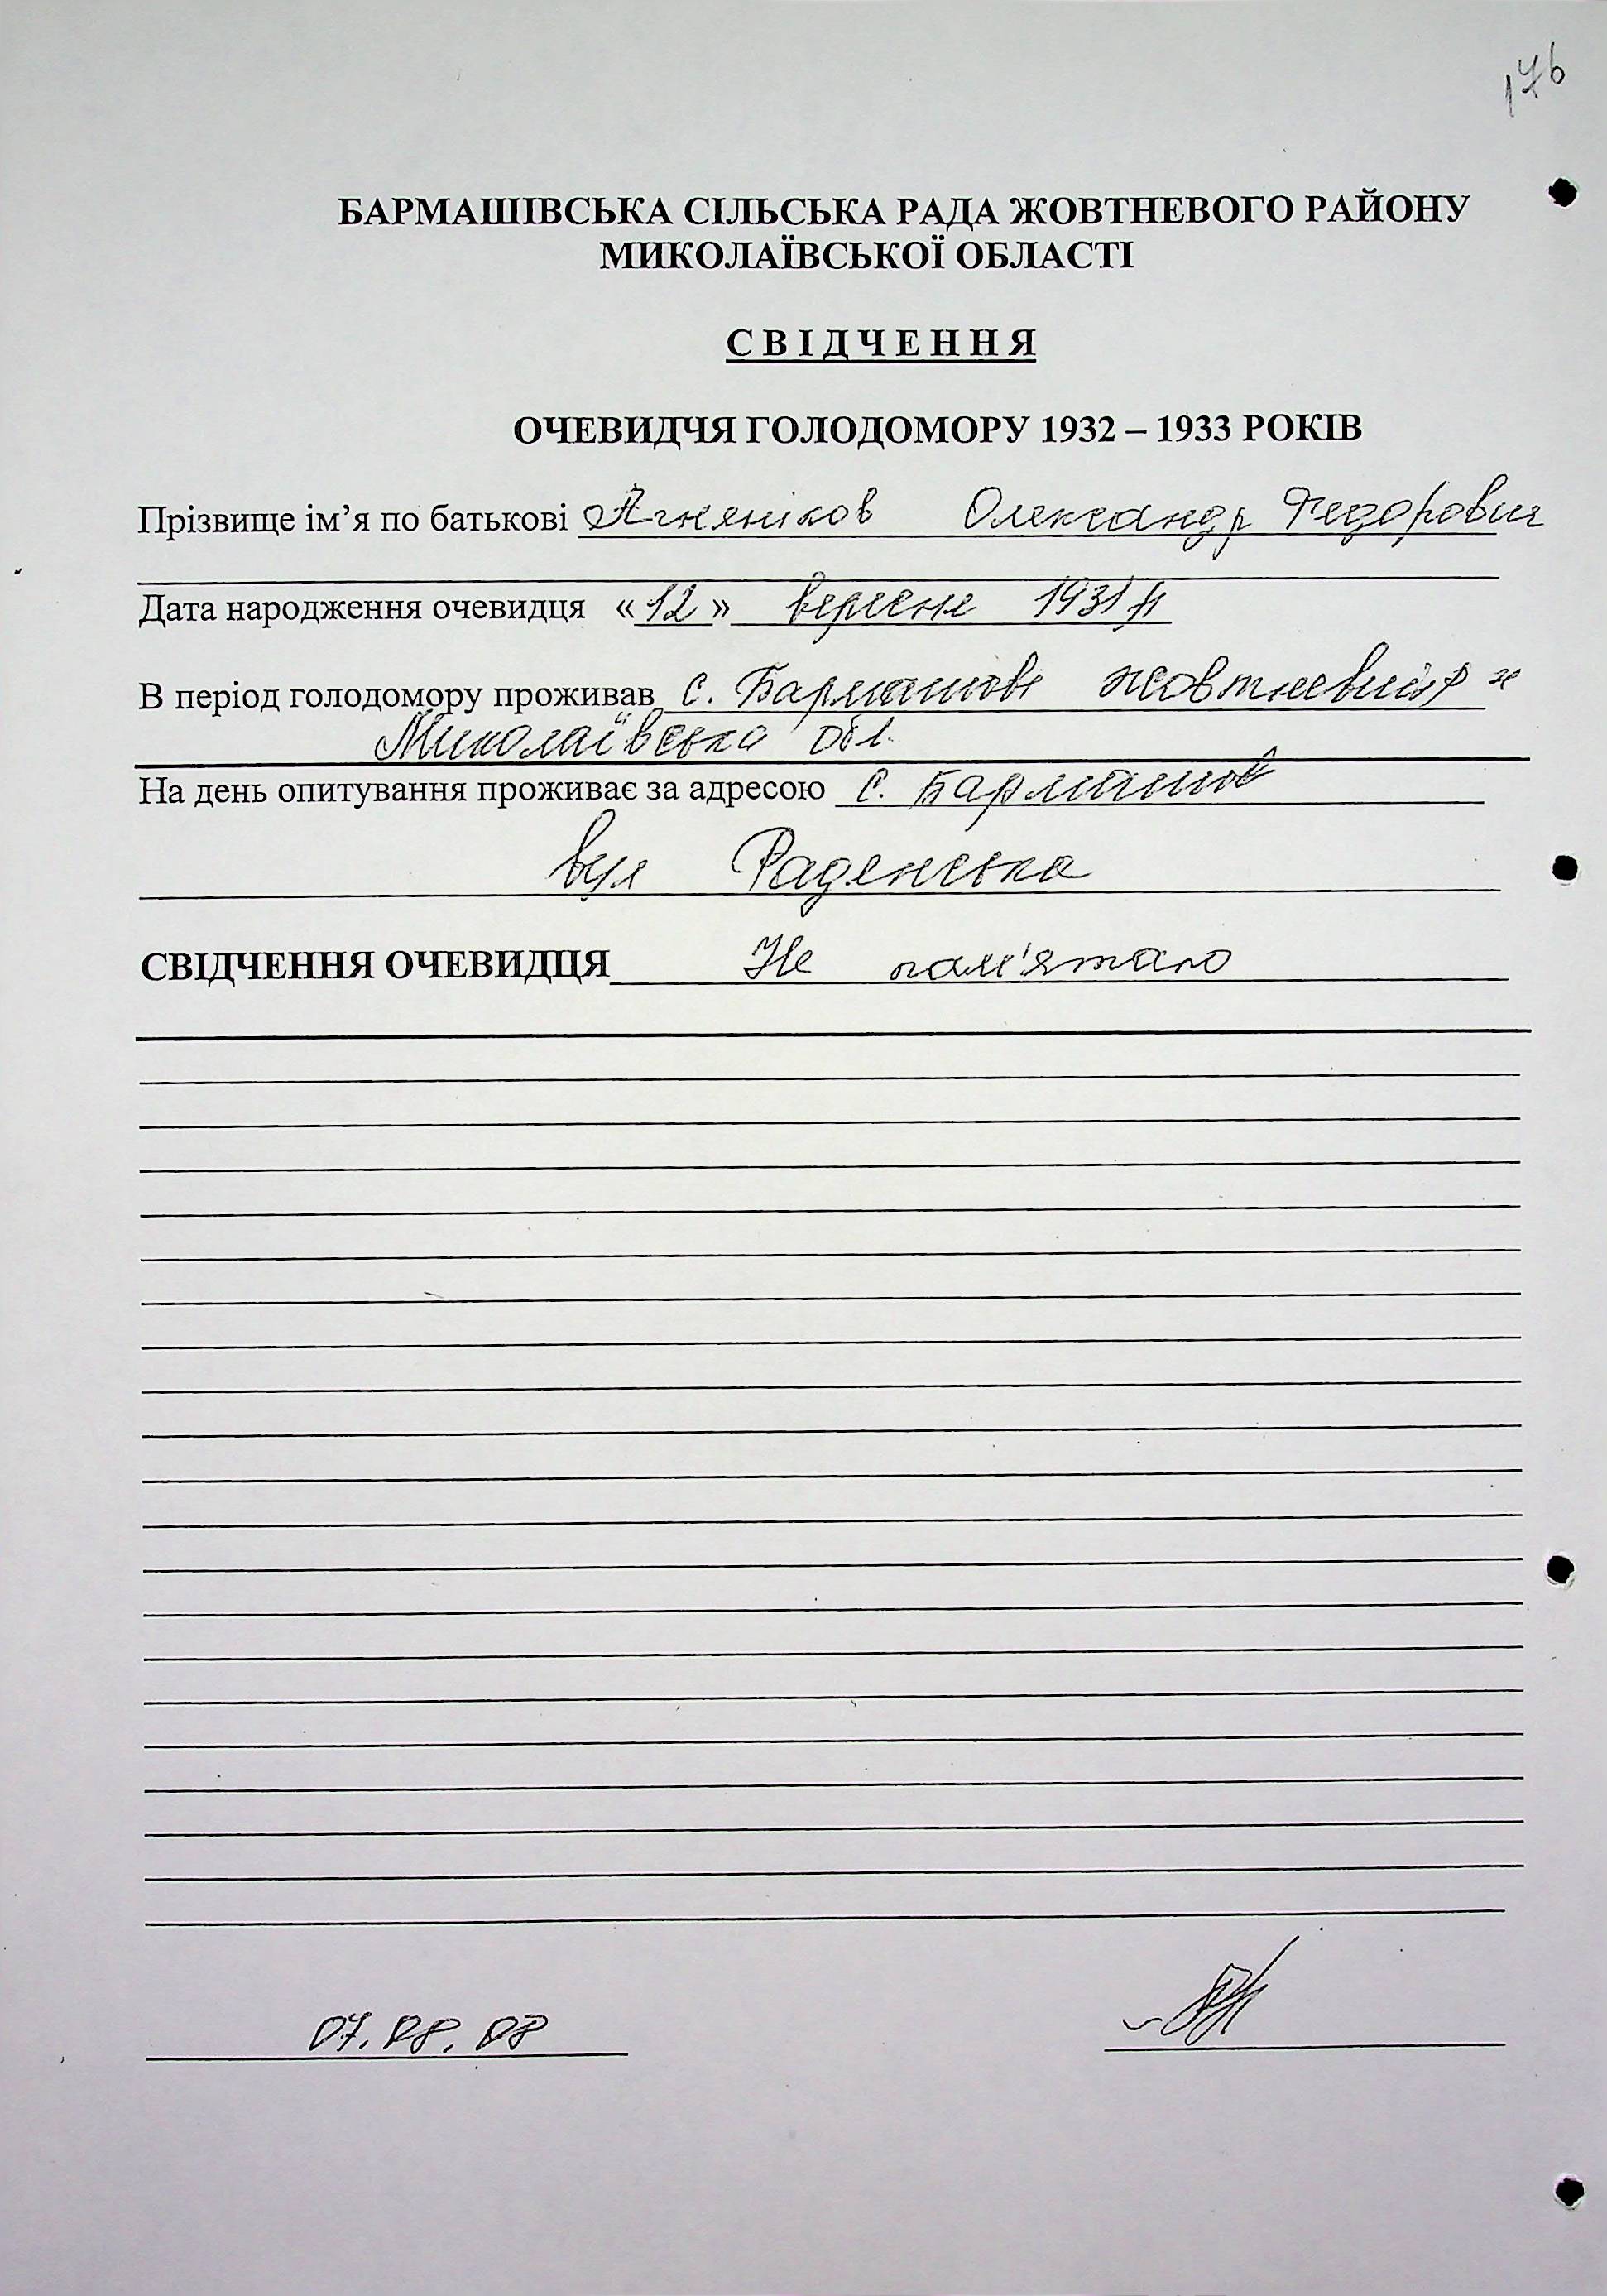 176
БАРМАШІВСЬКА СІЛЬСЬКА РАДА ЖОВТНЕВОГО РАЙОНУ
МИКОЛАЇВСЬКОЇ ОБЛАСТІ
СВІДЧЕННЯ
ОЧЕВИДЧЯ ГОЛОДОМОРУ 1932 – 1933 РОКІВ
Прізвище ім’я по батькові Агняніков Олександр Федорович
Дата народження очевидця «12» вересня 1931 р
В період голодомору проживав с. Бармашове Жовтневий р н
Миколаївська обл.
На день опитування проживає за адресою с. Бармашов
вул Раденська
СВІДЧЕННЯ ОЧЕВИДЦЯ Не пам'ятаю
07.08.08